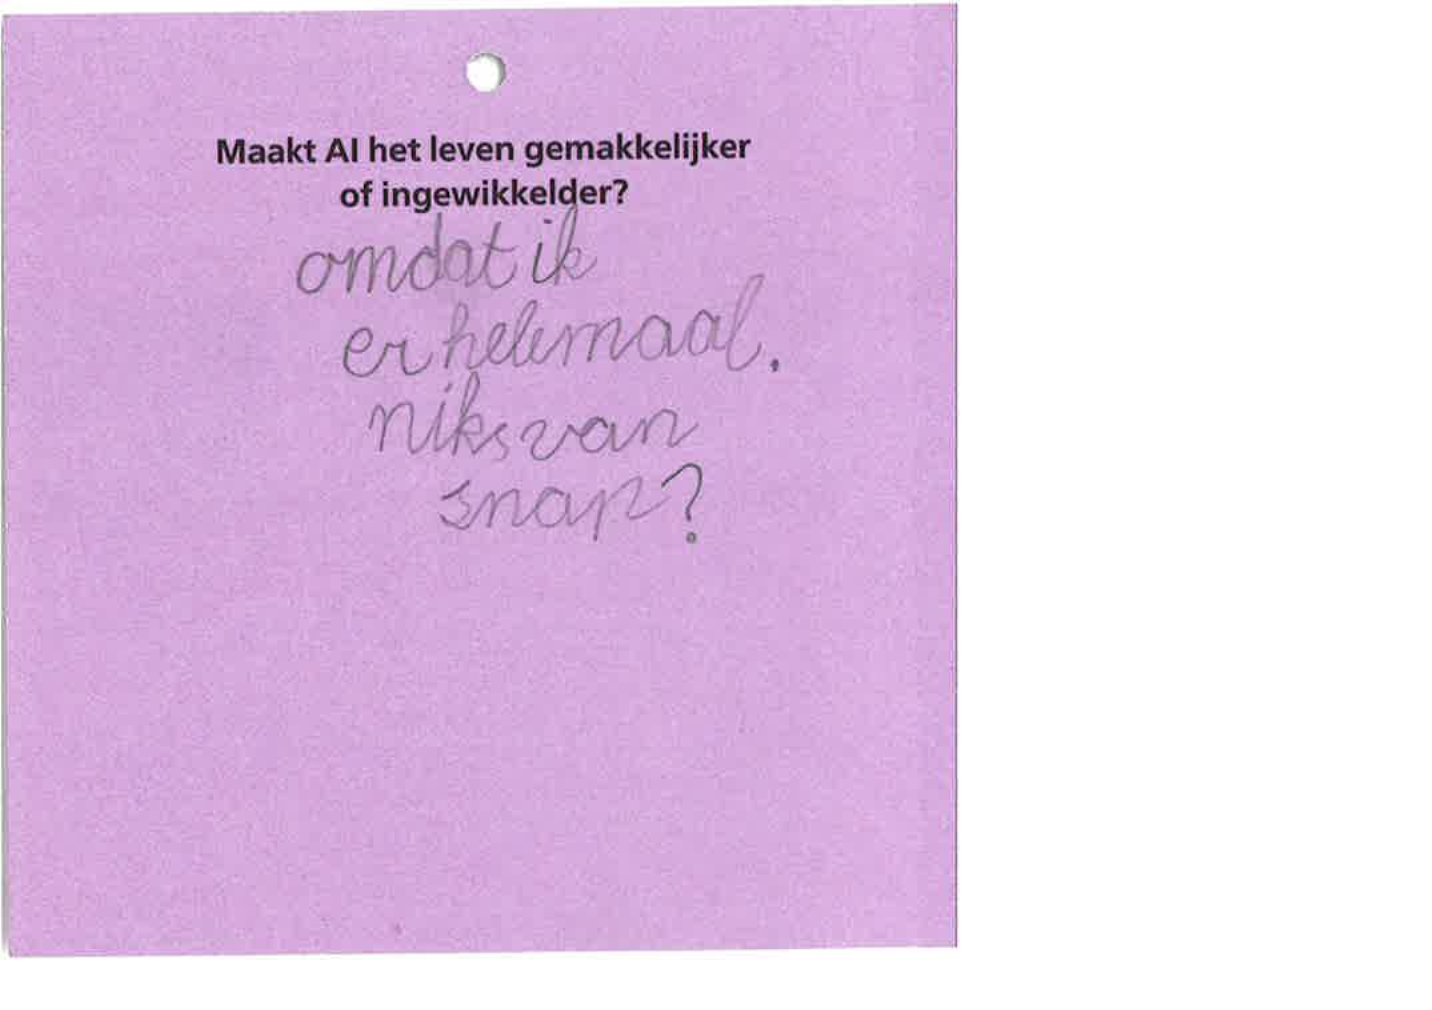 Maakt AI het leven gemakkelijker
of ingewikkelder?
omdat ik
er helemaal.
niks van
snap?